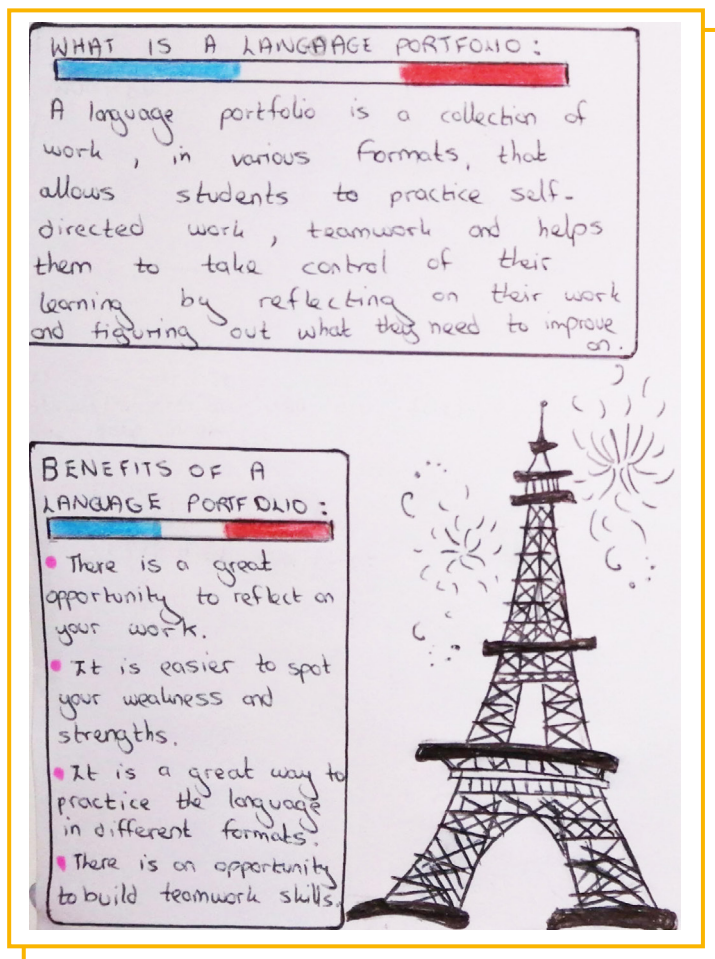 WHAT IS A LANGAAGE PORTFOLIO:
A language portfolio is a collection of
work, in various formats, that
allows students to practice self-
directed work, teamwork and helps
them to take control of their
learning by reflecting on their work
and figuring out what they need to improve
on.
BENEFITS OF A
LANGUAGE PORTFOLIO:
• There is a great
opportunity to reflect on
your work.
• It is easier to spot
your weakness and
strengths.
• It is a great way to
practice the language
in different formats.
• There is an opportunity
to build teamwork skills.